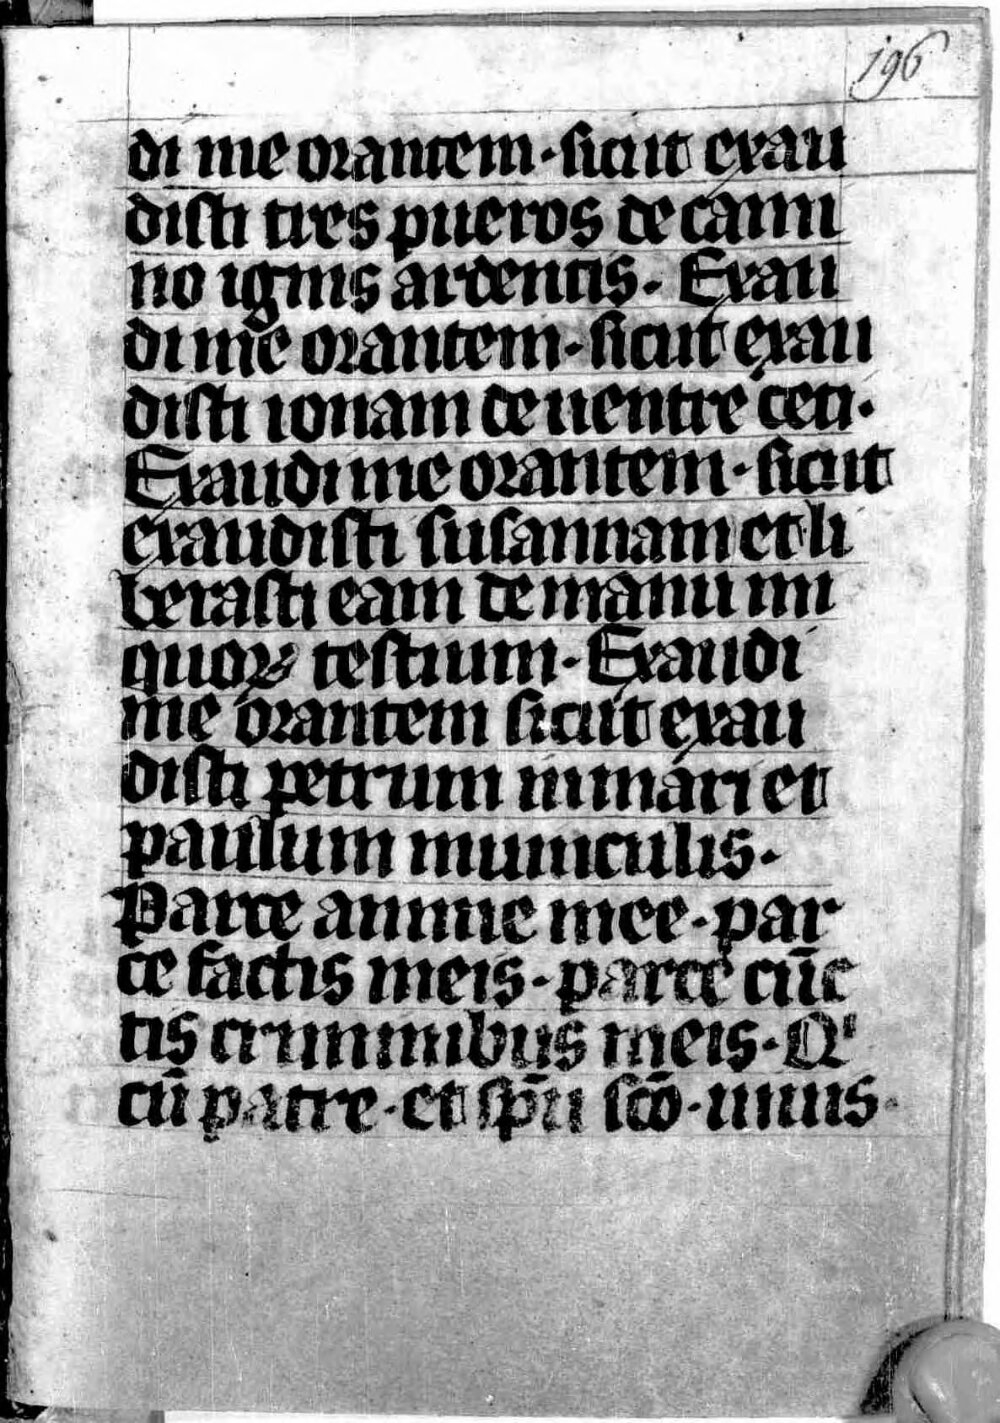 196
di me orantem · sicut exau
disti tres pueros de cami
no ignis ardentis · Exau
di me orantem · sicut exau
disti ionam de uentre ceti ·
Exaudi me orantem · sicut
exaudisti susannam et li
berasti eam de manu ini
quoꝝ testium · Exaudi
me orantem sicut exau
disti petrum in mari et
paulum in uinculis ·
Parce anime mee · par
ce factis meis · parce cūc
tis criminibus meis · Qͥ
cū patre · et sp̄u sc̄o · uiuis ·